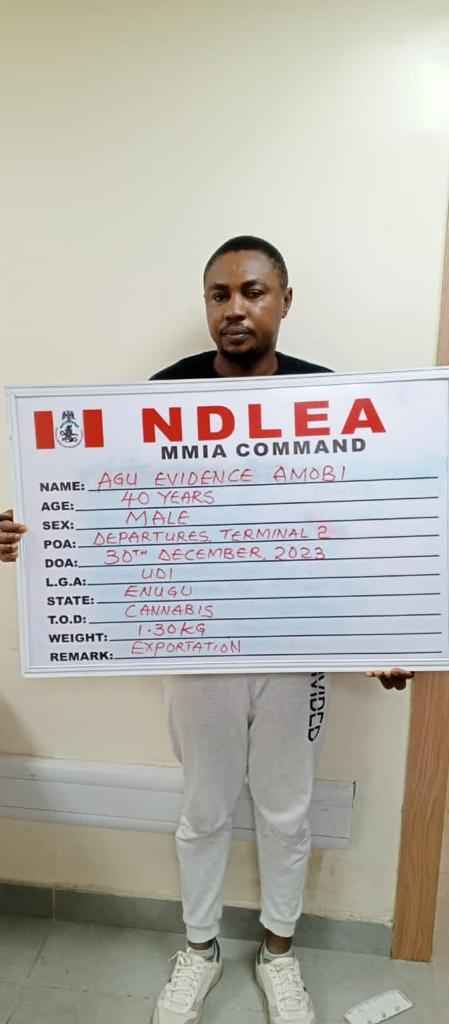 NDLEA
MMIA COMMAND
NAME: AGU EVIDENCE AMOBI
AGE: 40 YEARS
SEX: MALE
POA: DEPARTURES, TERMINAL 2
DOA: 30TH DECEMBER, 2023
L.G.A: UDI
STATE: ENUGU
T.O.D: CANNABIS
WEIGHT: 1.30KG
REMARK: EXPORTATION